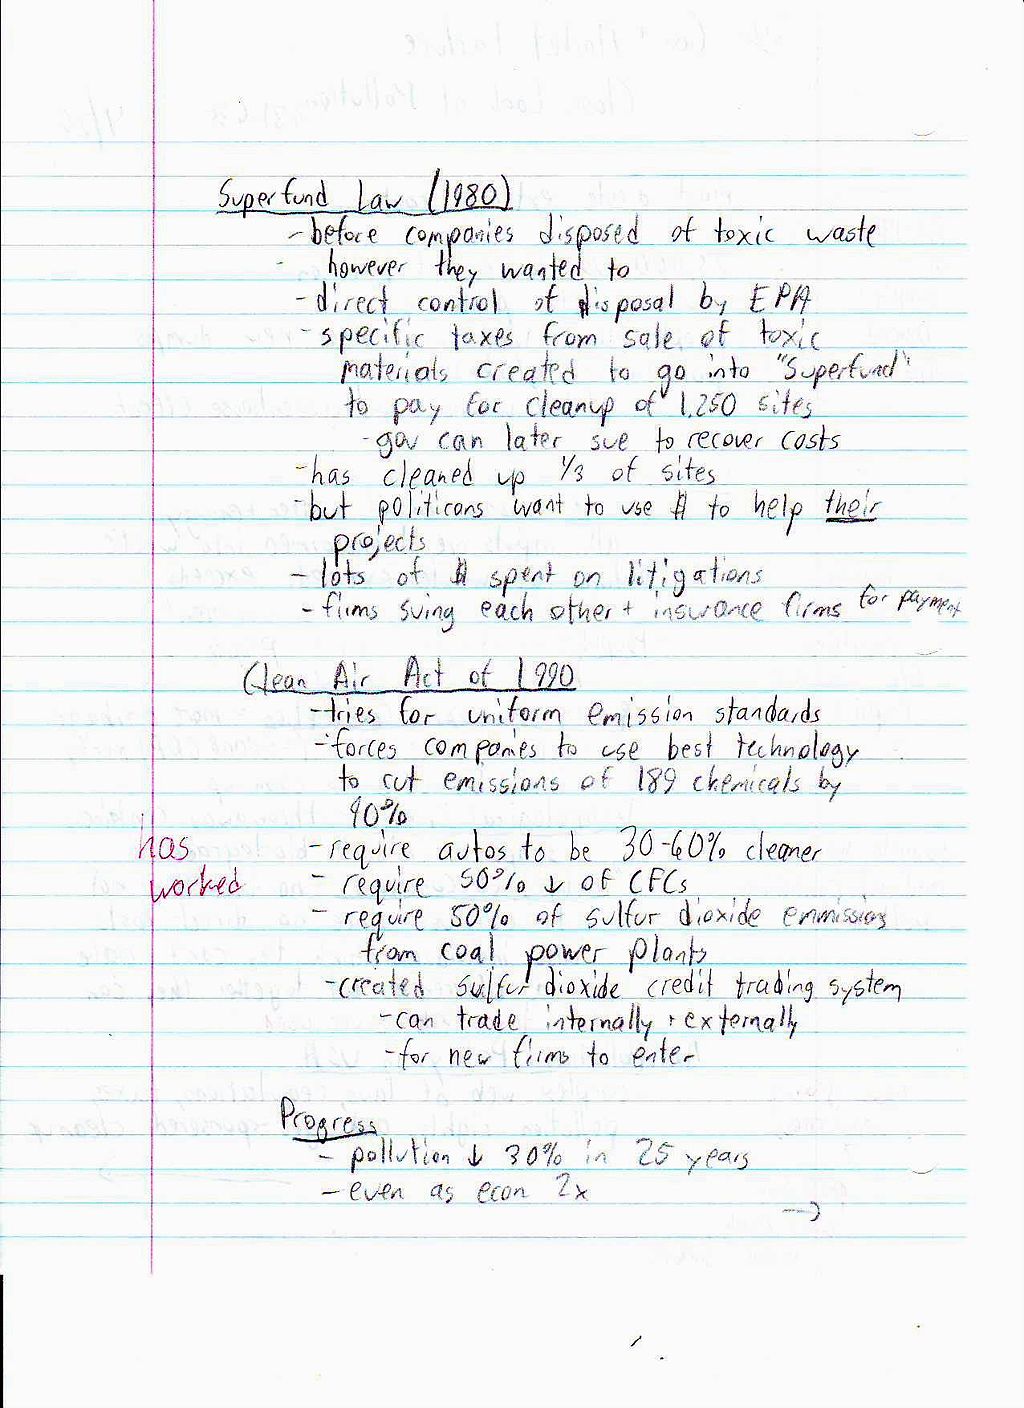 Superfund Law (1980)
- before companies disposed of toxic waste
- however they wanted to
- direct control of disposal by EPA
- specific taxes from sale of toxic
materials created to go into "Superfund"
to pay for cleanup of 1,250 sites
- gov can later sue to recover costs
- has cleaned up 1/3 of sites
- but politicons want to use $ to help their
projects
- lots of $ spent on litigations
- firms suing each other + insurance firms for payment
Clean Air Act of 1990
- tries for uniform emission standards
- forces companies to use best technology
to cut emissions of 189 chemicals by
90%
has
worked
- require autos to be 30-60% cleaner
- require 50% ↓ of CFCs
- require 50% of sulfur dioxide emmissions
from coal power plants
- created sulfur dioxide credit trading system
- can trade internally + externally
- for new firms to enter
Progress
- pollution ↓ 30% in 25 years
- even as econ 2x
→